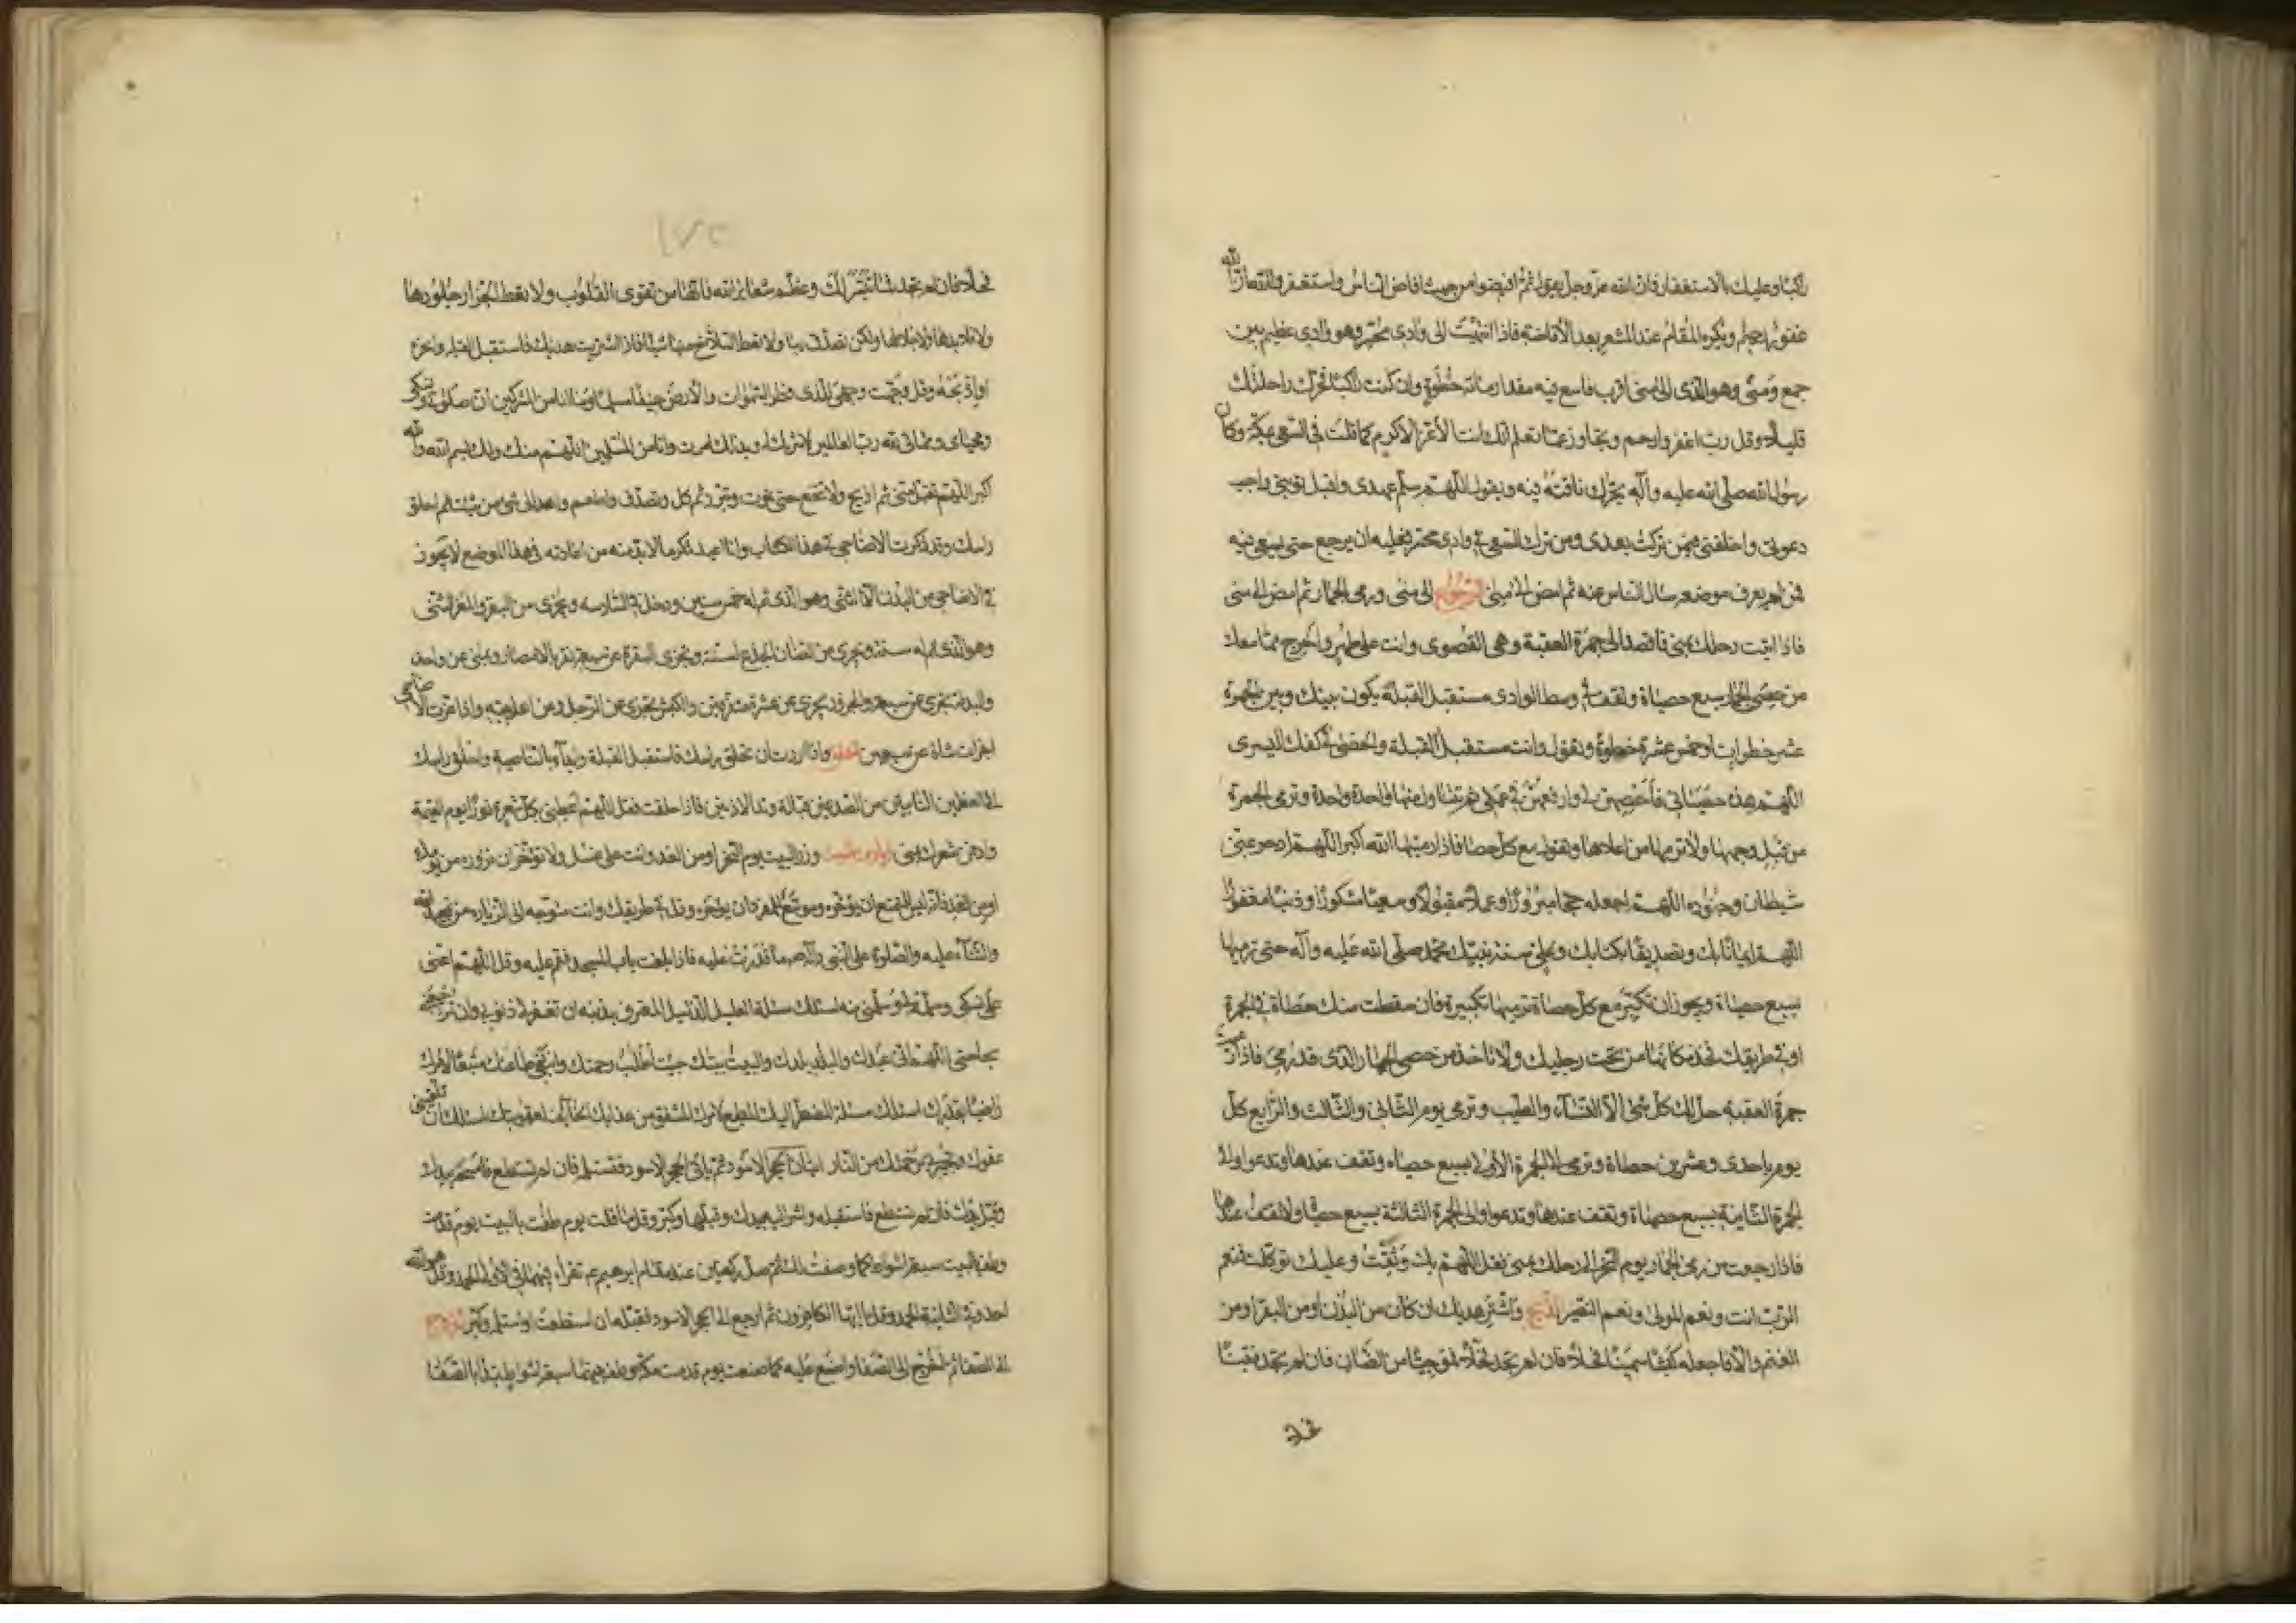 راكبا وعليك بالاستغفار فان الله عز وجل يقول ثم افيضوا من حيث افاض الناس واستغفروا الله ان الله
غفور رحيم ويكره المقام عند المشعر بعد الافاضة فاذا انتهيت الى وادى محسر وهو وادى عظيم بين
جمع ومنى وهو الذى الى منى اقرب فاسع فيه مقدار مائة خطوة وان كنت راكبا فحرك راحلتك
قليلا وقل رب اغفر وارحم وتجاوز عما تعلم انك انت الاعز الاكرم كما قلت فى السعى بمكة وكان
رسول الله صلى الله عليه وآله يحرك ناقته فيه ويقول اللهم سلم عهدى واقبل توبتى واجب
دعوتى واخلفنى فيمن تركت بعدى ومن ترك السعى فى وادى محسر فعليه ان يرجع حتى يسعى فيه
فمن لم يعرف موضعه سال الناس عنه ثم امض الى منى الى منى ورمى الجمار ثم امض الى منى
فاذا اتيت رحلك بمنى فاقصد الى جمرة العقبة وهى القصوى وانت على طهر واخرج مما معك
من حصى الجمار سبع حصاة وتقف فى وسط الوادى مستقبل القبلة يكون بينك وبين الجمرة
عشر خطوات او خمس عشرة خطوة وتقول وانت مستقبل القبلة والحصى فى كفك اليسرى
اللهم هذه حصياتى فاحصهن لى وارفعهن فى عملى ثم تتناول منها واحدة واحدة وترمى الجمرة
من قبل وجهها ولا ترمها من اعلاها وتقول مع كل حصاة اذا رميتها الله اكبر اللهم ادحر عنى
شيطان وجنوده اللهم اجعله حجا مبرورا وعملا مقبولا وسعيا مشكورا وذنبا مغفورا
اللهم ايمانا بك وتصديقا بكتابك وعلى سنة نبيك محمد صلى الله عليه وآله حتى ترميها
بسبع حصاة ويجوز ان تكبر مع كل حصاة ترميها تكبيرة فان سقطت منك حصاة فى الجمرة
او فى طريقك فخذ مكانها من تحت رجليك ولا تاخذ من حصى الجمار الذى قد رمى فاذا رميت
جمرة العقبة حل لك كل شئ الا النساء والطيب وترمى يوم الثانى والثالث والرابع كل
يوم باحدى وعشرين حصاة وترمى الى الجمرة الاولى بسبع حصاه وتقف عندها وتدعو والى
الجمرة الثانية بسبع حصاة وتقف عندها وتدعوا والى الجمرة الثالثة بسبع حصا ولا تقف عندها
فاذا رجعت من رمى الجمار يوم النحر الى رحلك بمنى فقل اللهم بك وثقت وعليك توكلت فنعم
الرب انت ونعم المولى ونعم النصير الذبح واشتر هديك ان كان من البدن او من البقر او من
الغنم والا فاجعله كبشا سمينا فحلا فان لم تجد فحلا فموجيا من الضان فان لم تجد فتيسا
فحلا فان لم تجد فما تيسر لك وعظم شعاير الله فانها من تقوى القلوب ولا تعط الجزار جلودها
ولا قلايدها ولا جلالها ولكن تصدق بها ولا تعط السلاخ منها شيئا فاذا اشتريت هديك فاستقبل القبلة وانحره
او اذبحه وقل وجهت وجهى للذى فطر السموات والارض حنيفا مسلما وما انا من المشركين ان صلوتى ونسكى
ومحياى ومماتى لله رب العالمين لا شريك له وبذلك امرت وانا من المسلمين اللهم منك ولك بسم الله والله
اكبر اللهم تقبل منى ثم اذبح ولا تنخع حتى يموت ويبرد ثم كل وتصدق واطعم واهد الى من شئت ثم احلق
راسك وقد ذكرت الاضاحى فى هذا الكتاب وانا اعيد ذكر ما لابد منه من اعادته فى هذا الموضع لا يجوز
فى الاضاحى من البدن الا الثنى وهو الذى تم له خمس سنين ودخل فى السادسه ويجزى من البقر والمعز الثنى
وهو الذى تم له سنة ويجزى من الضان الجذع لسنة وتجزى البقرة عن خمسة نفر بالامصار وبمنى عن واحد
والبدنة تجزى عن سبعة والجزور يجزى عن عشرة متفرقين والكبش يجزى عن الرجل وعن اهل بيته واذا عزت الاضاحى
اجزات شاة عن سبعين واذا اردت ان تحلق راسك فاستقبل القبلة وابدأ بالناصية واحلق راسك
الى العظمين النابتين من الصدغين قبالة وتد الاذنين فاذا حلقت فقل اللهم اعطنى بكل شعرة نورا يوم القيمة
وادفن شعرك بمنى زيارة البيت وزر البيت يوم النحر او من الغد وانت على غسل ولا تؤخر ان تزوره من يومك
او من الغد فانه ليس للمتمتع ان يؤخره وموسع للمفرد ان يؤخره وقل فى طريقك وانت متوجه الى الزيارة من تمجيد الله
والثناء عليه والصلوة على النبى وآله ما قدرت عليه فاذا بلغت باب المسجد فقم عليه وقل اللهم اعنى
على نسكى وسلمه لى وسلمنى منه اسئلك مسئلة العليل الذليل المعترف بذنبه ان تغفر لى ذنوبى وان ترجعنى
بحاجتى اللهم انى عبدك والبلد بلدك والبيت بيتك جئت اطلب رحمتك وابتغى طاعتك متبعا لامرك
راضيا بقدرك اسئلك مسئلة المضطر اليك المطيع لامرك المشفق من عذابك الخائف لعقوبتك اسئلك ان تلقينى
عفوك وتجيرنى برحمتك من النار اتيان الحجر الاسود ثم ياتى الحجر الاسود فتستلمه فان لم تستطع فامسحه بيدك
وقبل يدك فان لم تستطع فاستقبله واشر اليه بيدك وقبلها وكبر وقل ما قلت يوم طفت بالبيت يوم قدمت
وطف بالبيت سبعة اشواط كما وصفت لك ثم صل ركعتين عند مقام ابرهيم عم تقرأ فيهما فى الاولى الحمد وقل هو الله
احد وفى الثانية الحمد وقل يا ايها الكافرون ثم ارجع الى الحجر الاسود فقبله ان استطعت او استلمه وكبر الخروج
الى الصفا ثم اخرج الى الصفا واصنع عليه كما صنعت يوم قدمت مكة وطف بينهما سبعة اشواط تبدأ بالصفا